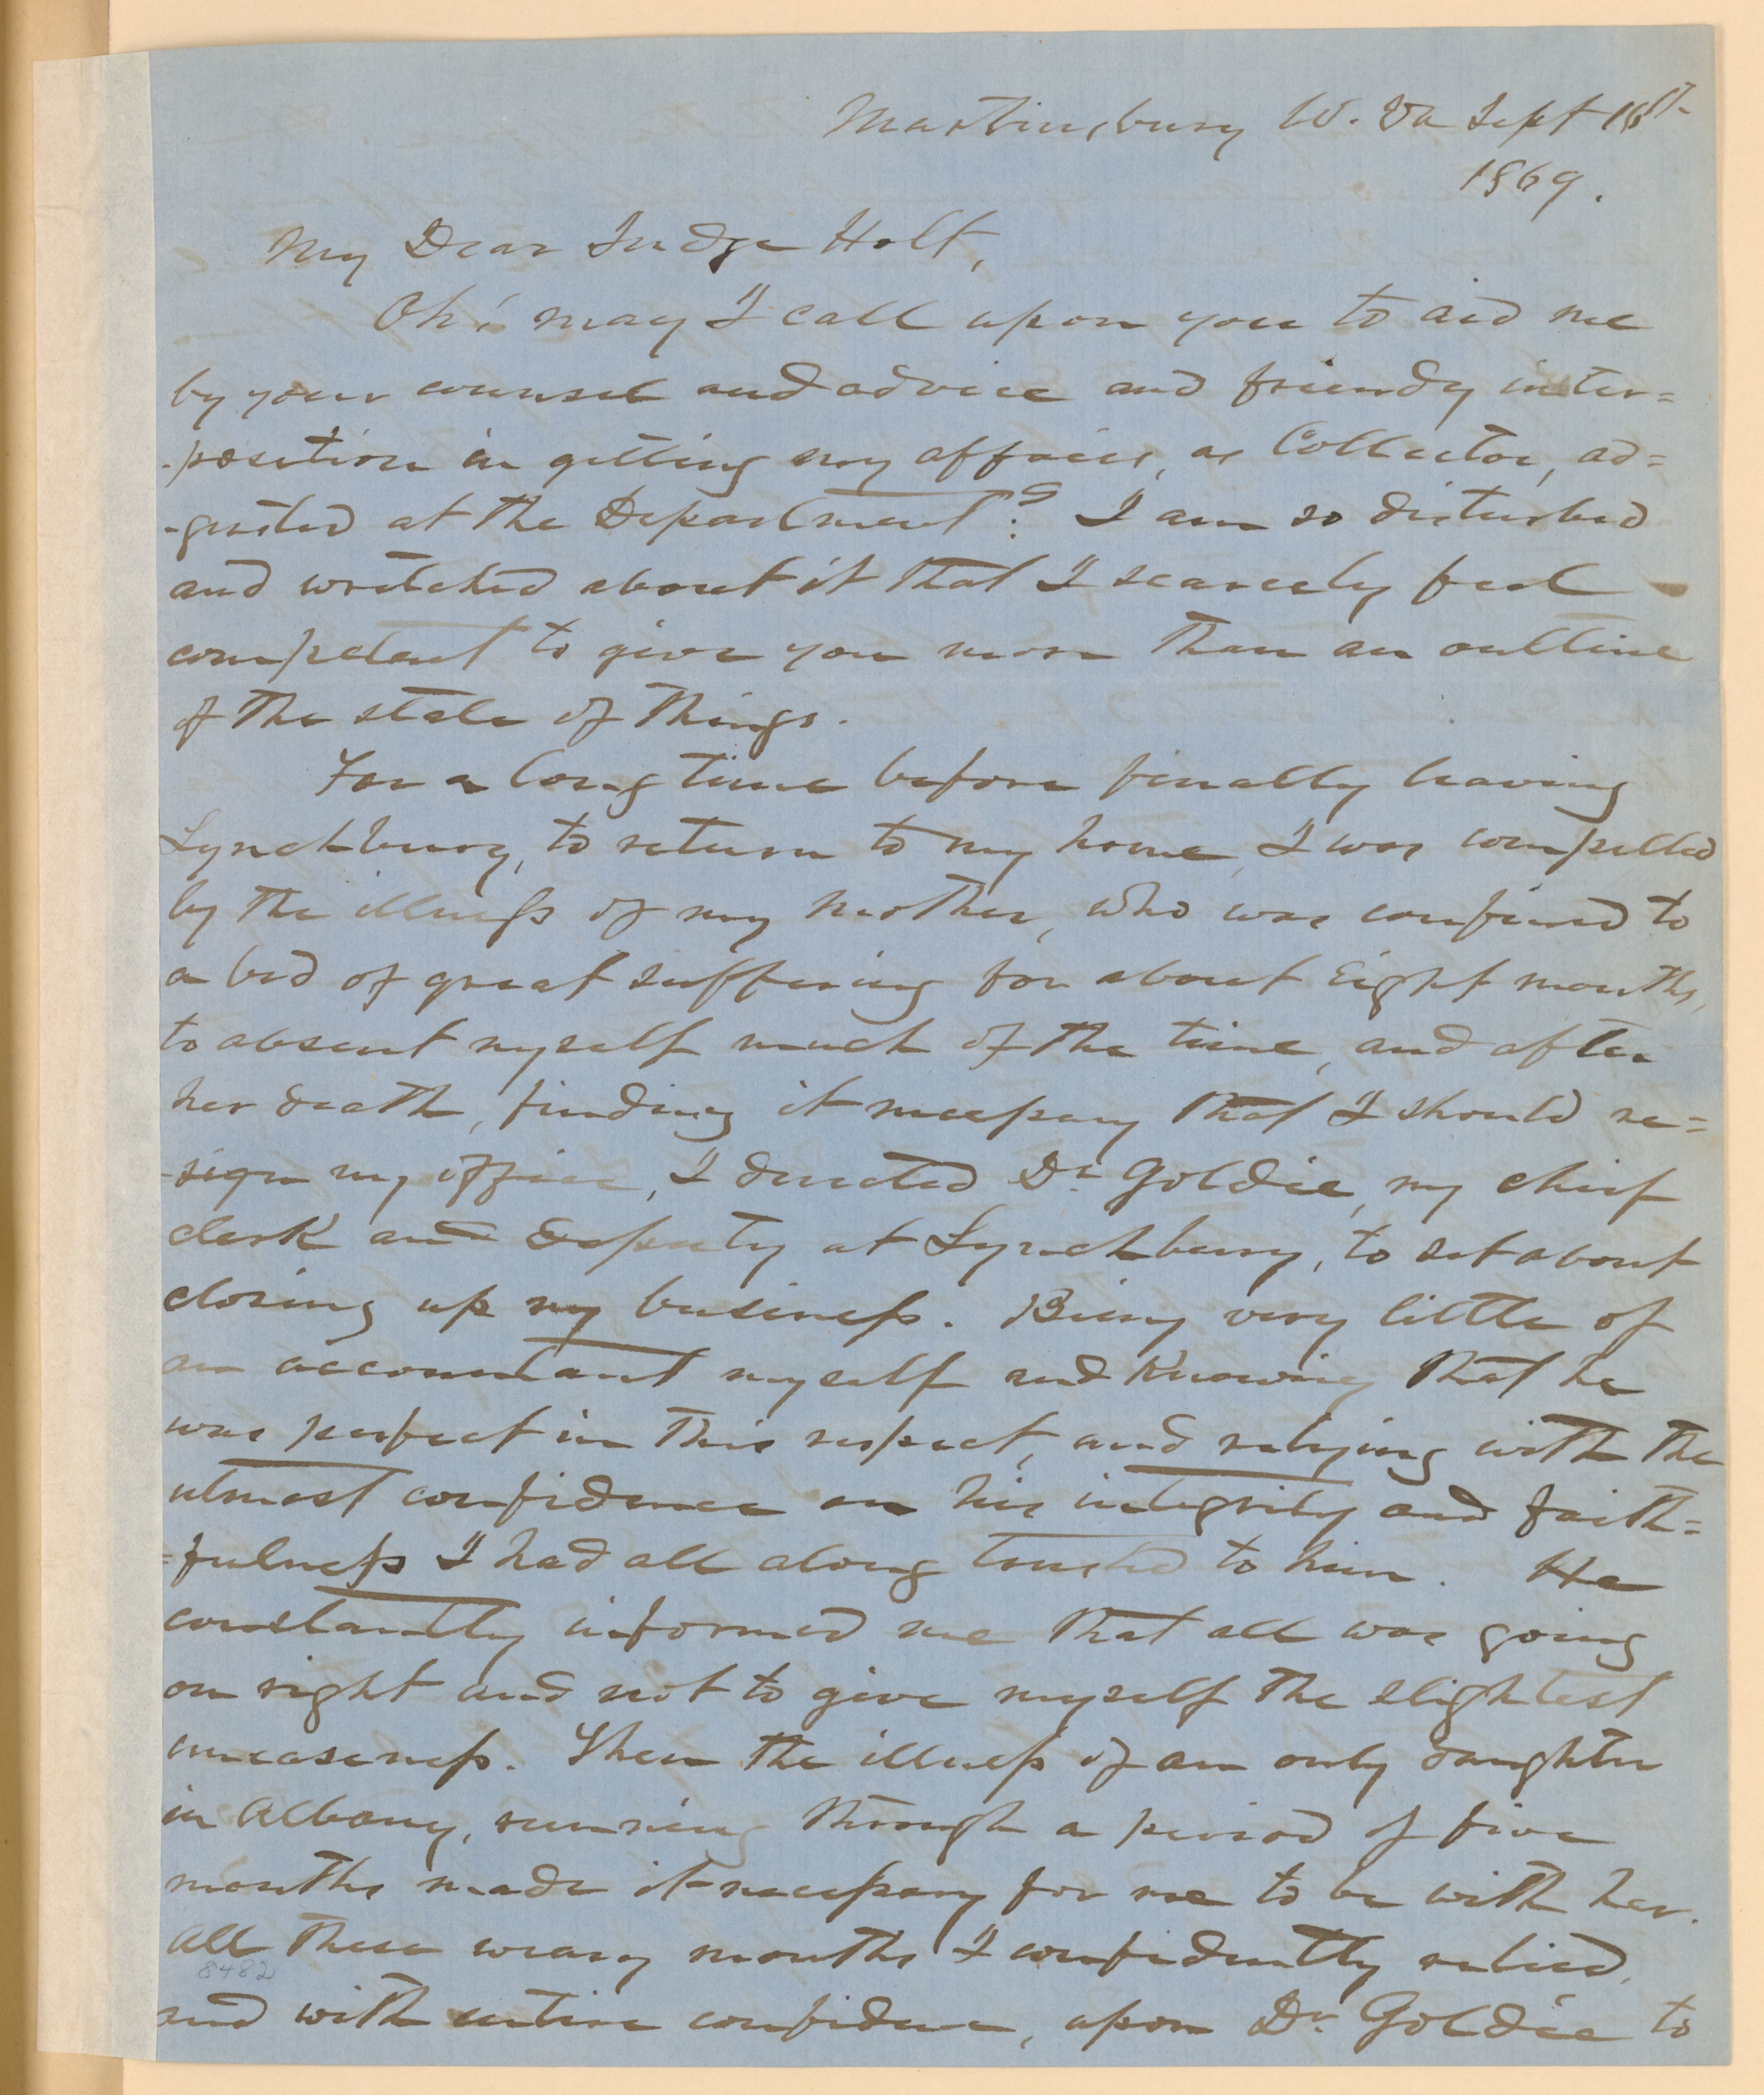 Martinsburg W. Va Sept 16th
1869.
My Dear Judge Holt,
Oh! may I call upon you to aid me
by your counsel and advice and friendly inter=
-position in getting my affairs, as Collector, ad=
-justed at the Department? I am so disturbed
and wretched about it that I scarcely feel
competent to give you more than an outline
of the state of things.
For a long time before finally leaving
Lynchburg, to return to my home, I was compelled
by the illness of my mother, who was confined to
a bed of great suffering for about eight months,
to absent myself much of the time, and after
her death, finding it necessary that I should re=
-sign my office, I directed Dr Goldie, my chief
clerk and Deputy at Lynchburg, to set about
closing up my business. Being very little of
an accountant myself and knowing that he
was perfect in this respect, and relying with the
utmost confidence on his integrity and faith=
=fulness I had all along trusted to him. He
constantly informed me that all was going
on right and not to give myself the slightest
uneaseness. Then the illness of an only daughter
in Albany, running through a period of five
months made it necessary for me to be with her.
All these weary months I confidently relied,
and with entire confidence, upon Dr. Goldie to
8482